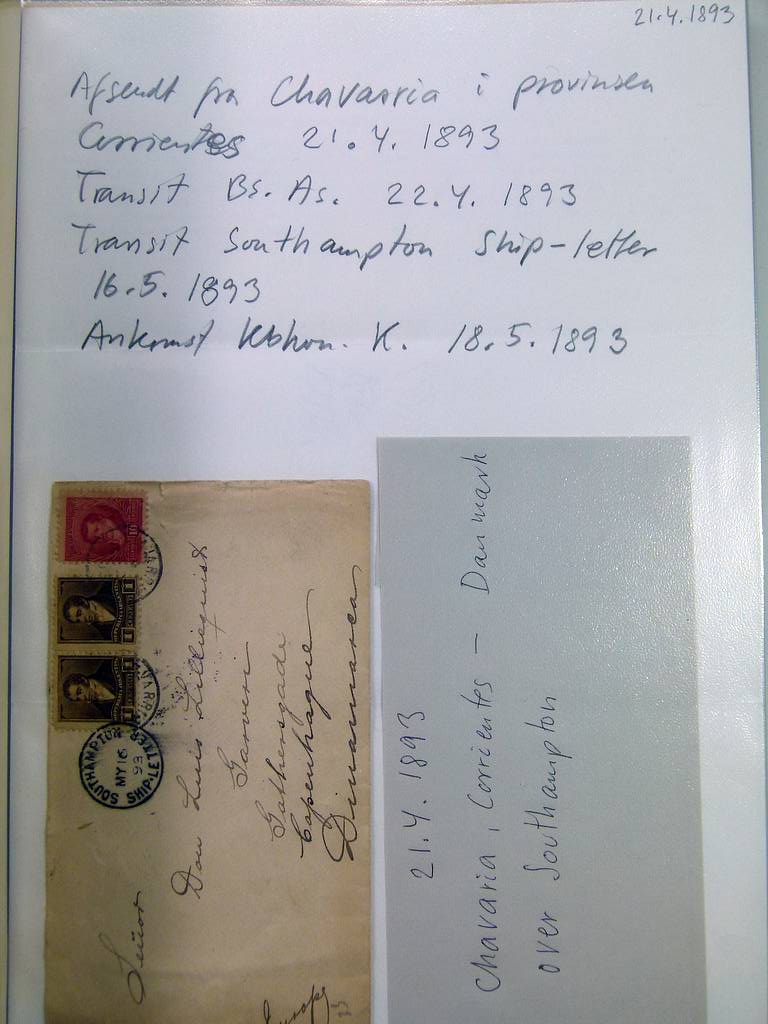 21.4.1893
Afsendt fra Chavarria i provinsen
Corrientes 21.4.1893
Transit Bs. As. 22.4.1893
Transit Southampton Ship-letter
16.5.1893
Ankomst Kbhvn. K. 18.5.1893
SOUTHAMPTON SHIP-LETTER
MY 16
93
Señor
Don Luis Lillieqvist
Garveri
Gothersgade
Copenhague
Dinamarca
Europa
21.4.1893
Chavaria, Corrientes — Danmark
over Southampton